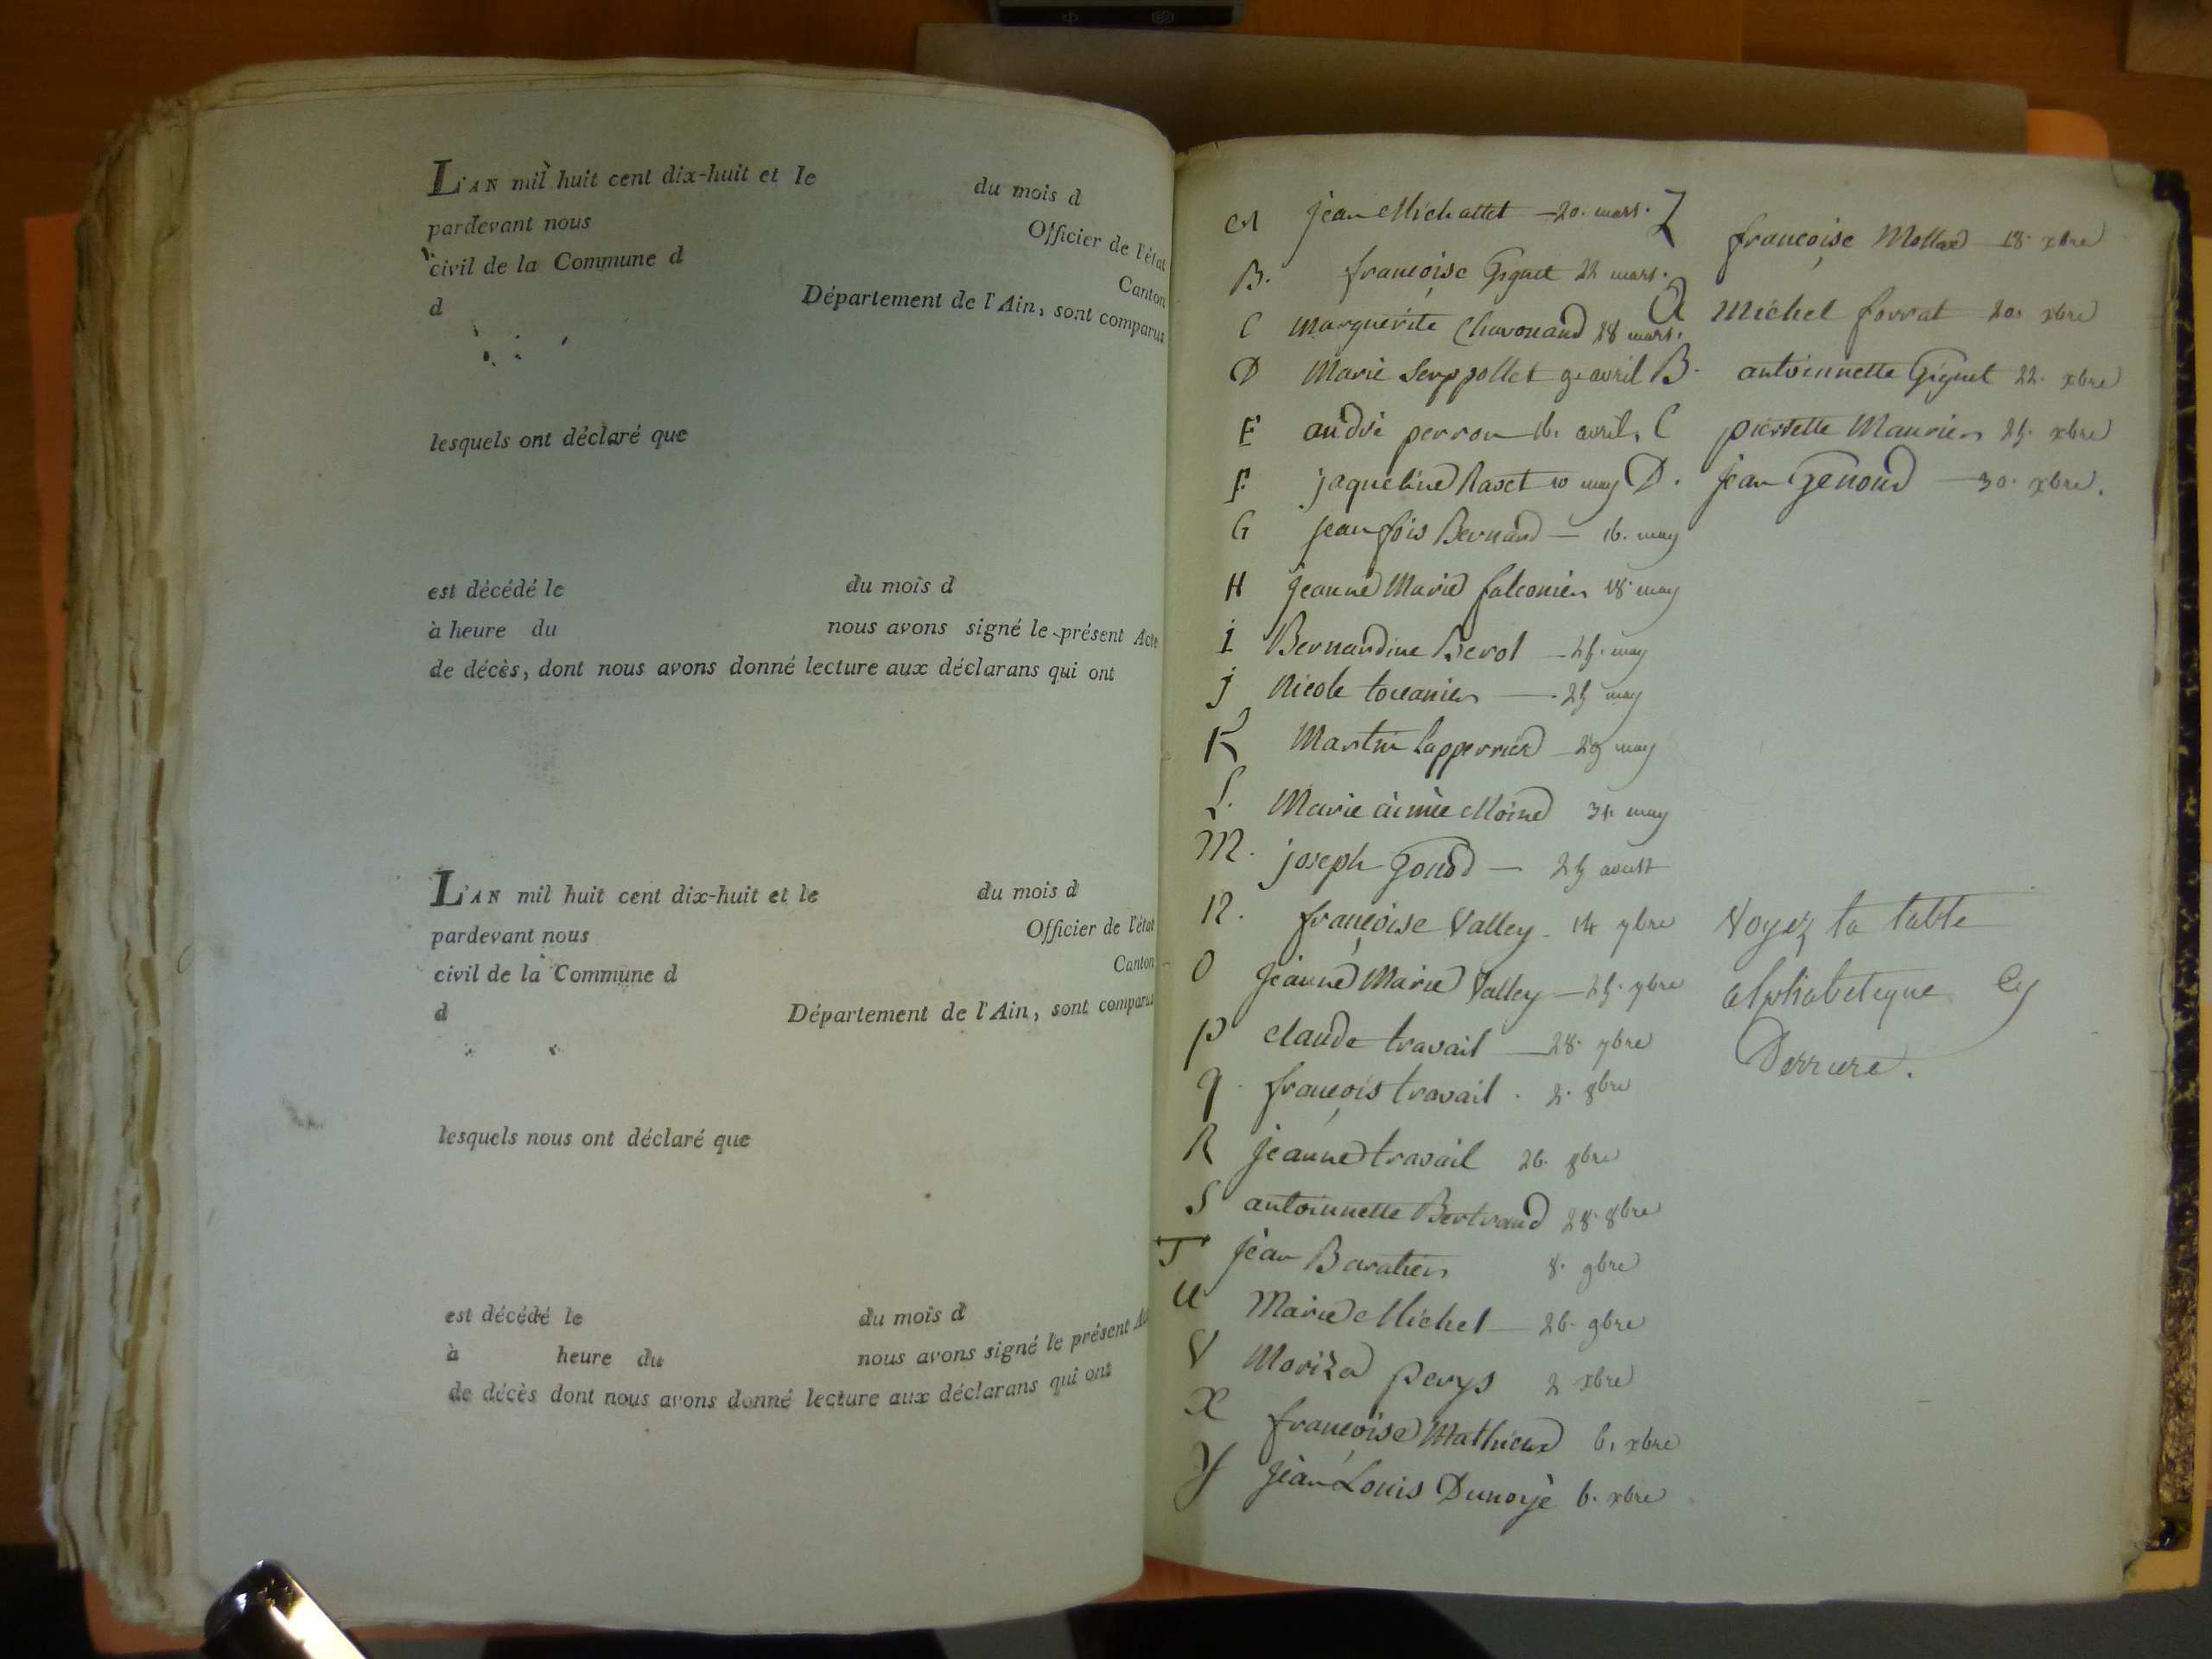 L'AN mil huit cent dix-huit et le du mois d
pardevant nous Officier de l'état
civil de la Commune d Canton
d Département de l'Ain, sont comparus
lesquels ont déclaré que
est décédé le du mois d
à heure du nous avons signé le présent Acte
de décès, dont nous avons donné lecture aux déclarans qui ont
L'AN mil huit cent dix-huit et le du mois d
pardevant nous Officier de l'état
civil de la Commune d Canton
d Département de l'Ain, sont comparus
lesquels nous ont déclaré que
est décédé le du mois d
à heure du nous avons signé le présent Ac
de décès dont nous avons donné lecture aux déclarans qui ont
A jean Michallet 20. mars.
B. françoise Giguet 22 mars.
C Marguerite Chavouand 28 mars.
D Marie Serppollet 9. avril
E andré perron 16. avril,
F. jaqueline Ravet 10 may
G jean fois Bernard 16. may
H jeanne Marie falconier 18. may
i Bernardine Berot 25. may
j Nicole toucanier 25 may
K Martin lapperrier 29 may
L. Marie aimée Moine 31. may
M. joseph Gonod 25 aoust
N. françoise Valley 14 7bre
O jeanne Marie Valley 25. 7bre
P claude travail 28. 7bre
q. françois travail. 2. 8bre
R jeanne travail 26. 8bre
S antoinnette Bertrand 28. 8bre
T jean Baratier 8. 9bre
U Marie Michel 26. 9bre
V Moriza perys 2 xbre
X françoise Mathieux 6, xbre
Y jean Louis Dunoyé 6. xbre
Z françoise Mollard 18. xbre
A Michel forrat 20. xbre
B. antoinnette Giguet 22. xbre
C pierrette Maurier 25. xbre
D. jean Genoud 30. xbre.
Voyez la table
alphabetique Cy
Derriere.